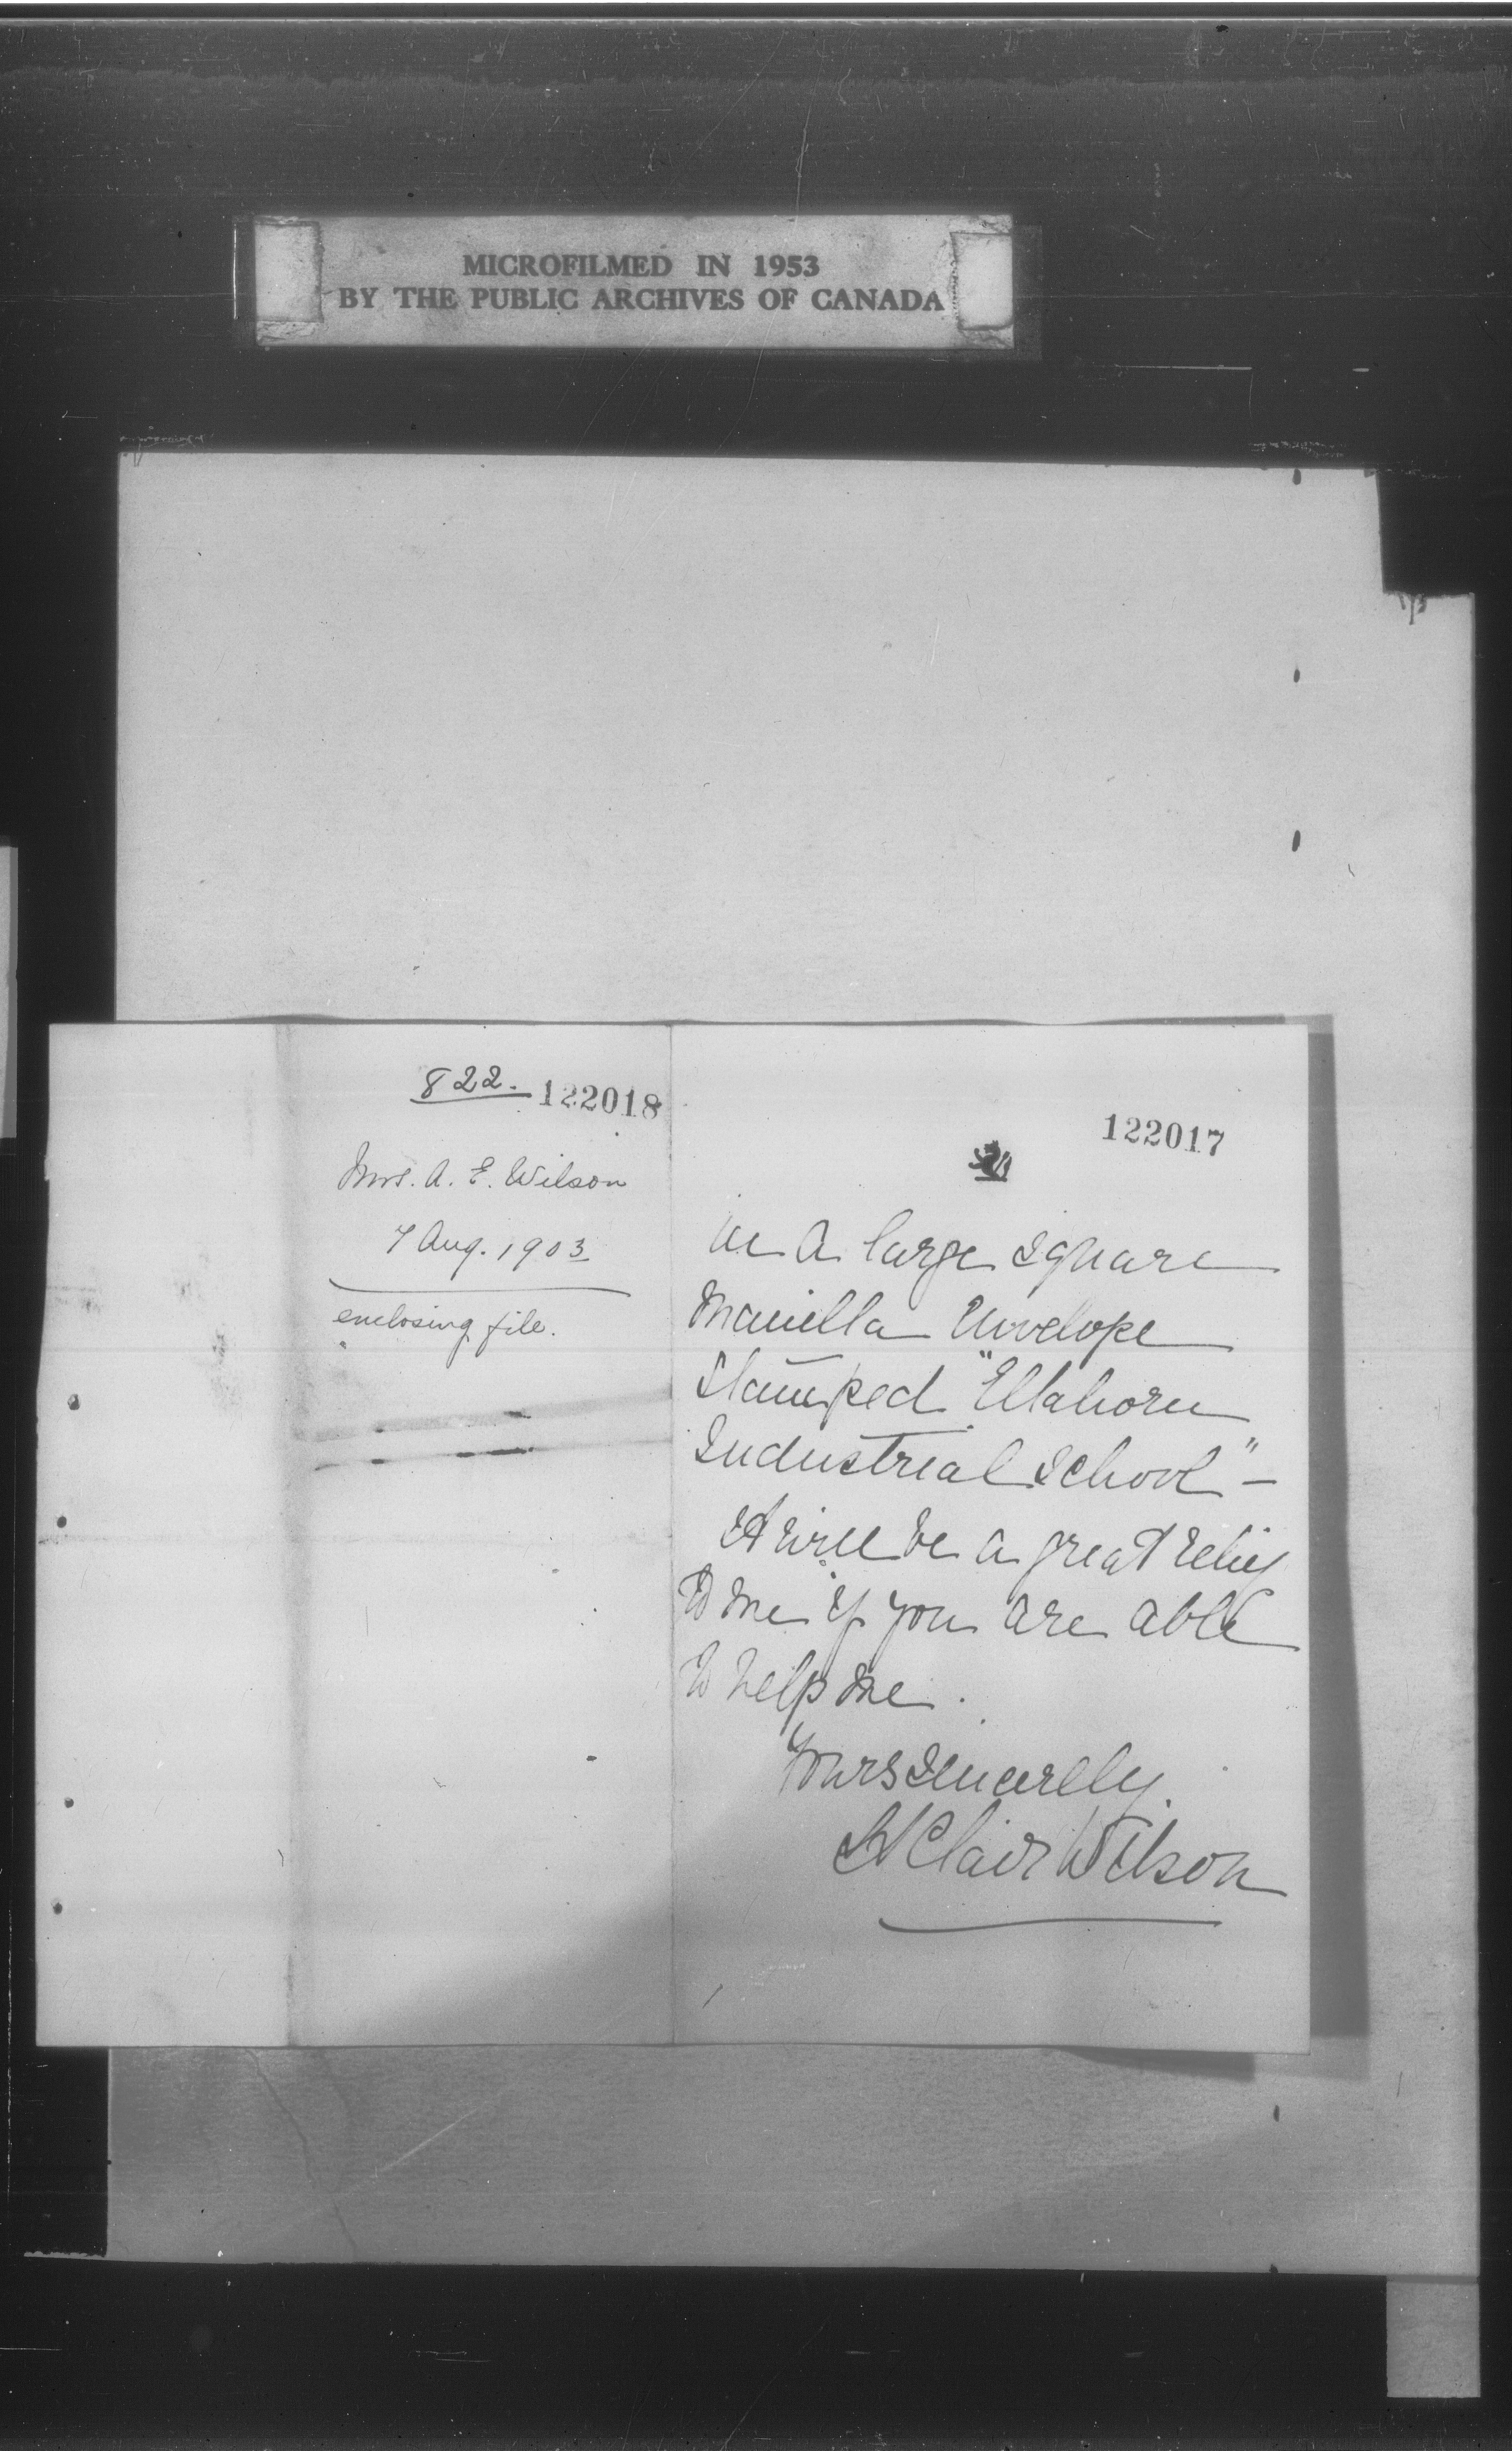 MICROFILMED IN 1953
BY THE PUBLIC ARCHIVES OF CANADA
822. 122018
Mrs. A. E. Wilson
7 Aug. 1903
enclosing file.
122017
in a large square
Manilla Envelope
Stamped "Elkhorn
Industrial School" -
It will be a great relief
to me if you are able
to help me.
Yours sincerely.
St Clair Wilson